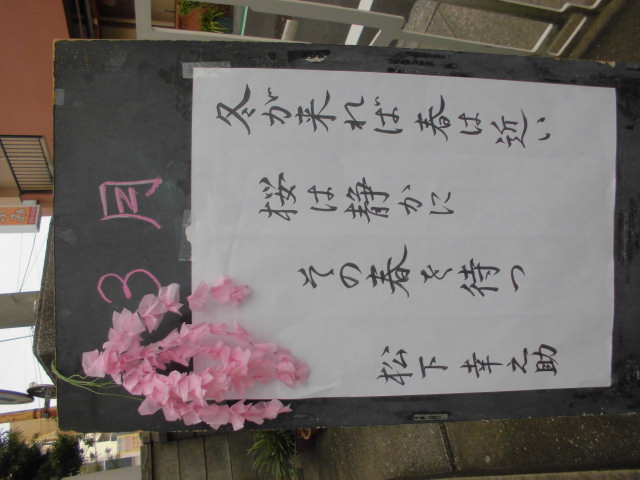 3月
冬が来れば春は近い
桜は静かに
その春を待つ
松下幸之助